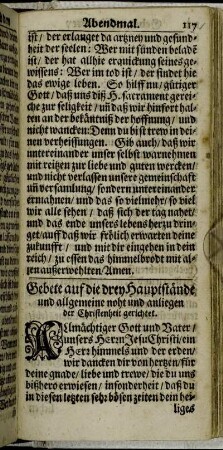 Abendmal. 117
ist/ der erlanget da artzney und gesund-
heit der seelen: Wer mit sünden beladē
ist/ der hat allhie erquickung seines ge-
wissens: Wer im tod ist/ der findet hie
das ewige leben. So hilff nu/ gütiger
Gott/ daß uns diß H. sacrament gerei-
che zur seligkeit/ uñ daß wir hinfort hal-
ten an der bekäntnüß der hoffnung/ und
nicht wancken: Denn du bist trew in dei-
nen verheissungen. Gib auch/ daß wir
untereinander unser selbst warnehmen
mit reitzen zur liebe und guten wercken/
und nicht verlassen unsere gemeinschafft
uñ versamlung/ sondern untereinander
ermahnen/ und das so vielmehr/ so viel
wir alle sehen/ daß sich der tag nahet/
und das ende unsers lebens herzu drin-
get/ auff daß wir frölich erwarten deine
zukunfft/ und mit dir eingehen in dein
reich/ zu essen das himmelbrodt mit al-
len außerwehlten/ Amen.
Gebete auf die drey Hauptstände
und allgemeine noht und anliegen
der Christenheit gerichtet.
Allmächtiger Gott und Vater/
unsers Herrn Jesu Christi/ ein
Herr himmels und der erden/
wir dancken dir von hertzen/ für
deine gnade/ liebe und trewe/ die du uns
bißhero erwiesen/ insonderheit/ daß du
in diesen letzten sehr bösen zeiten dein hei-
liges